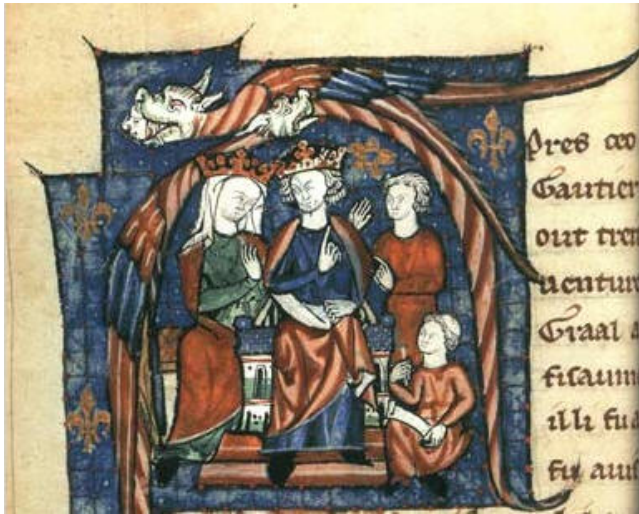 Apres ceo
Gautier
out tret
uentur
Graal a
fisaum
illi fu
fu auis